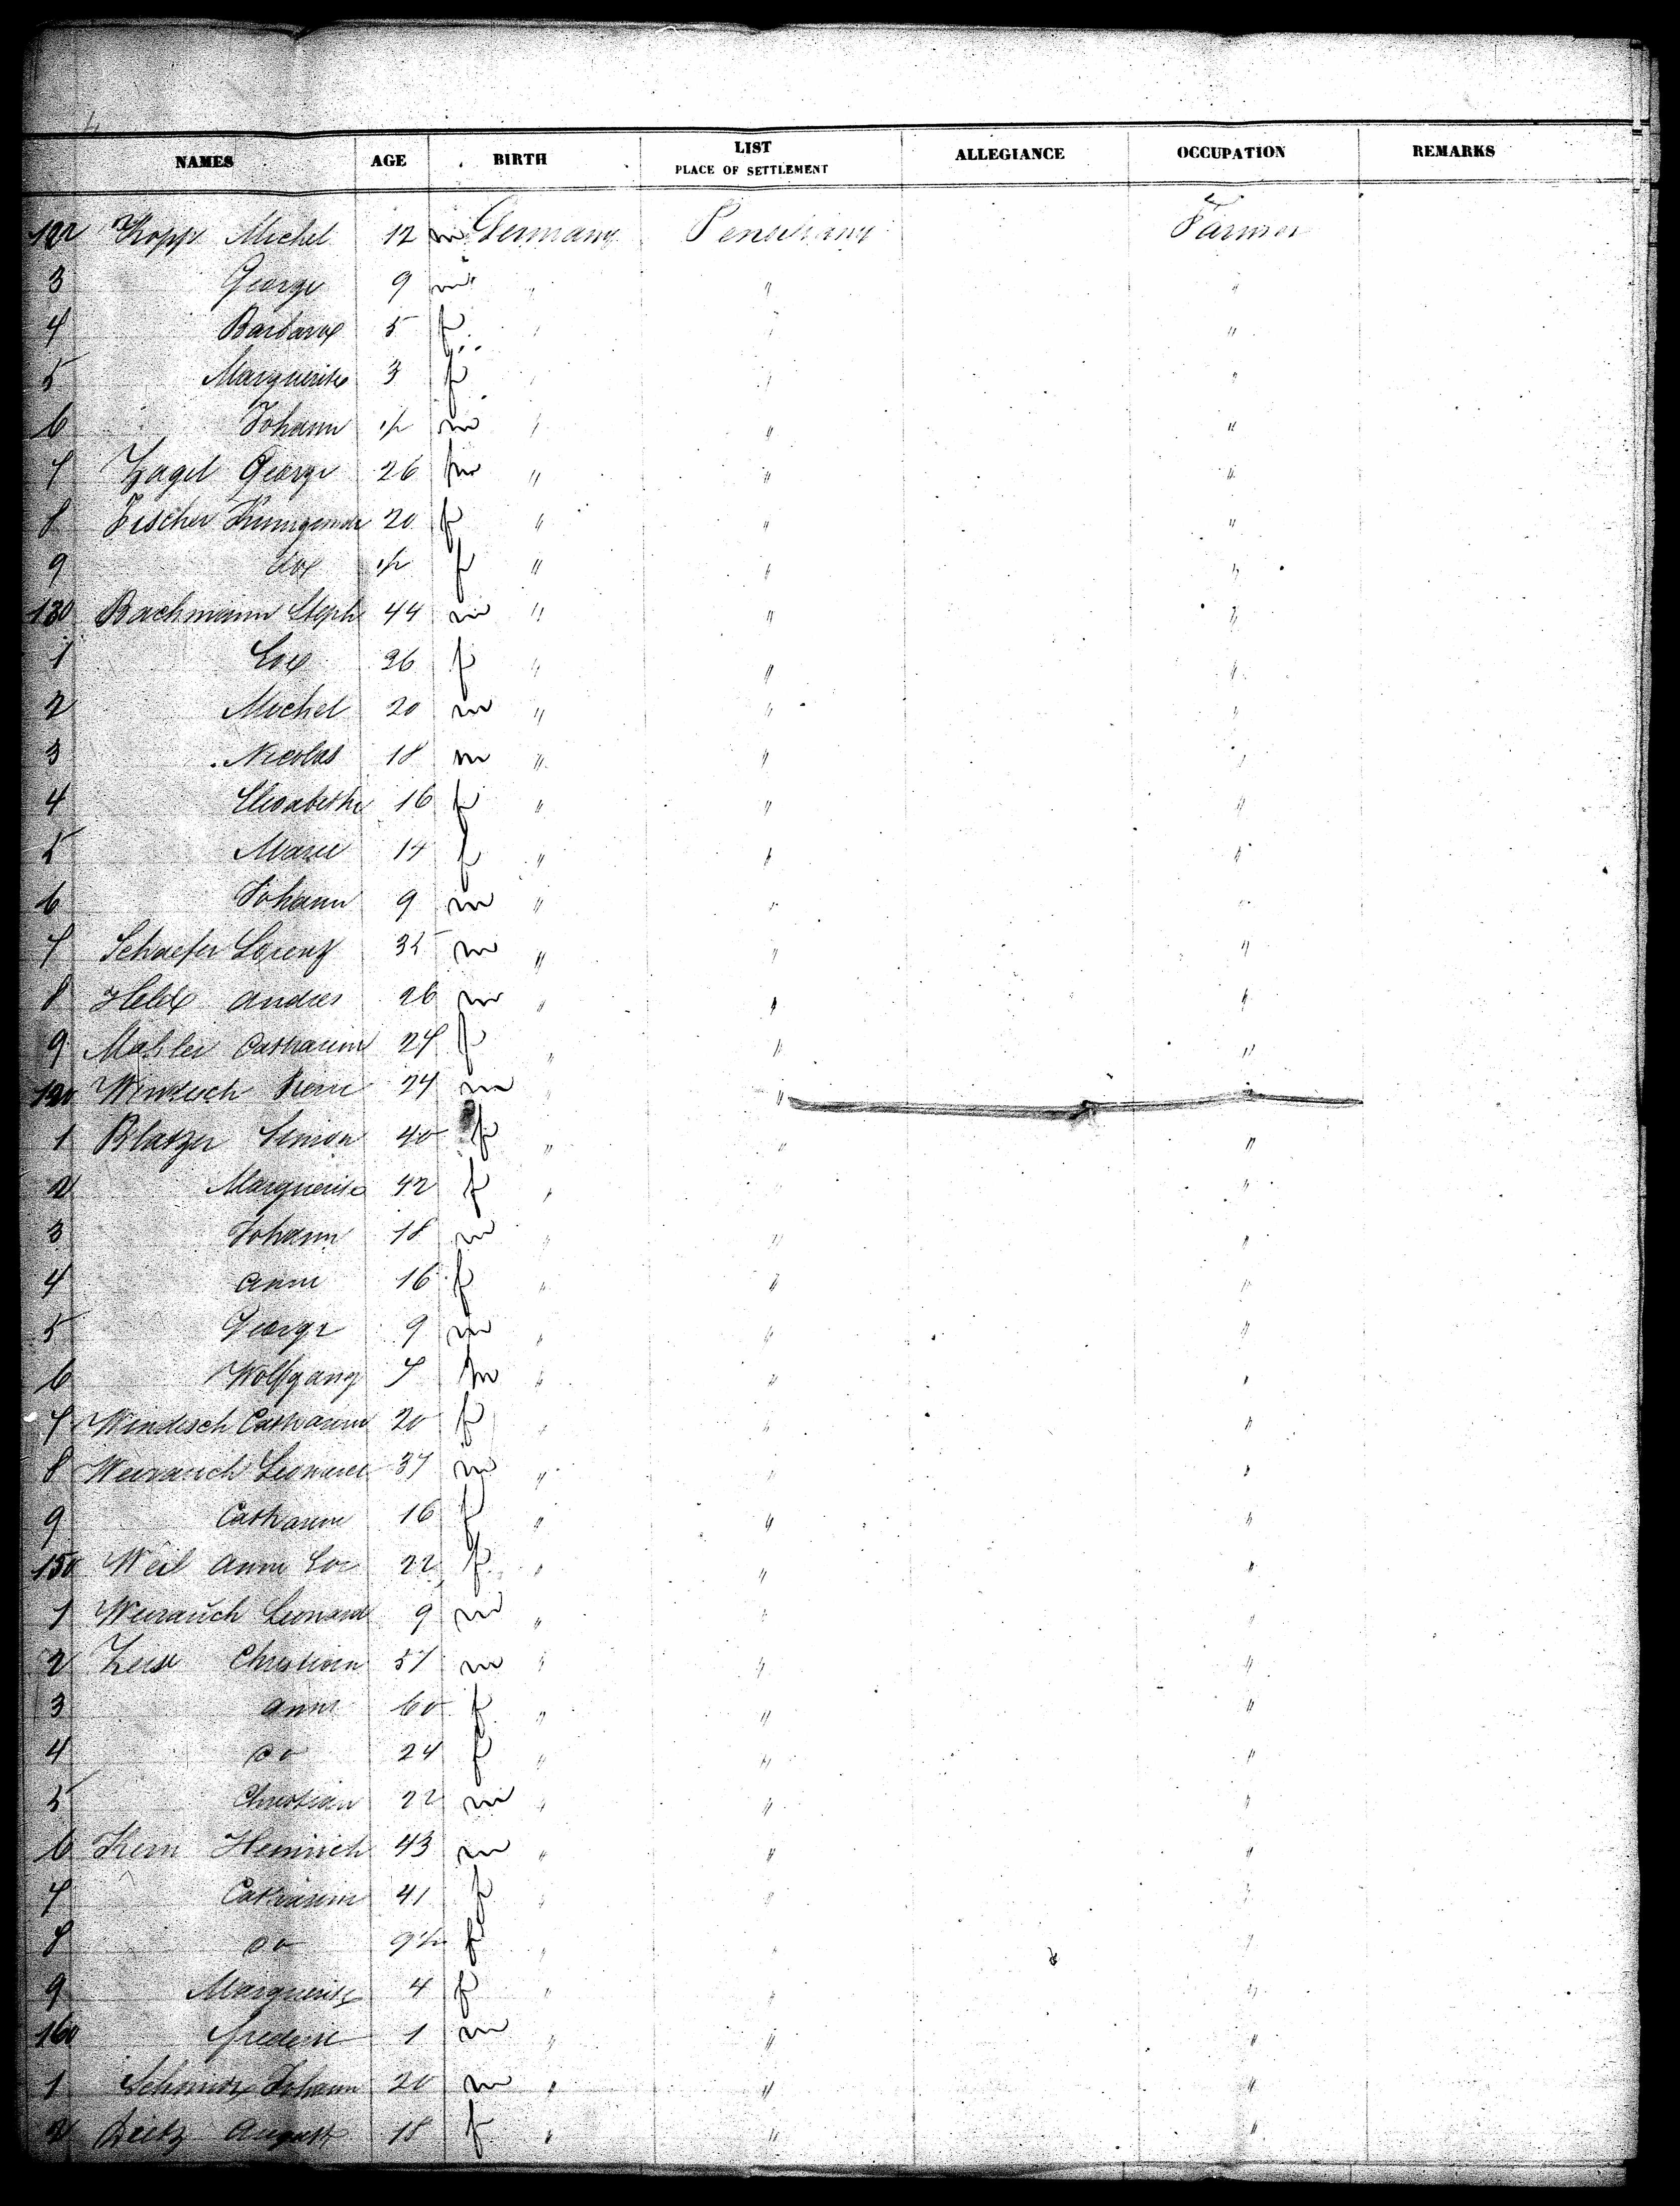 NAMES AGE BIRTH LIST PLACE OF SETTLEMENT ALLEGIANCE OCCUPATION REMARKS
122 Kopp Michel 12 m Germany Farmer
3 George 9 m " " "
4 Barbara 5 f " " "
5 Marguerite 3 f " " "
6 Johann m " " "
7 Zagel George 26 m " " "
8 Fischer 20 f " " "
9 f " " "
130 Bachmann Steph 44 m " " "
1 Eva 26 f " " "
2 Michel 20 m " " "
3 Nicolas 18 m " " "
4 Elisabethe 16 f " " "
5 Marie 14 f " " "
6 Johann 9 m " " "
7 Schaefer Lorenz 35 m " " "
8 Held Andres 26 m " " "
9 Catharine 24 f " " "
140 Windisch 24 m " " "
1 Blatzer Simon 40 f " " "
2 Marguerite 42 f " "
3 Johann 18 m " " "
4 Anne 16 f " " "
5 George 9 m " " "
6 Wolfgang 7 m " " "
7 Windisch Catharine 20 f " " "
8 Weirauch Leonard 37 m " " "
9 Catharine 16 f " " "
150 Weil Anne Eve 22 f " " "
1 Weirauch Leonard 9 m " " "
2 Christian 57 m " " "
3 Anne 60 f " " "
4 do 24 f " " "
5 Christian 22 m " " "
6 Kern Heinrich 43 m " " "
7 Catharine 41 f " " "
8 do 9 1/2 f " " "
9 Marguerite 4 f " " "
160 Frederic 1 m " " "
1 Johann 20 m " " "
2 Dietz August 18 f " " "